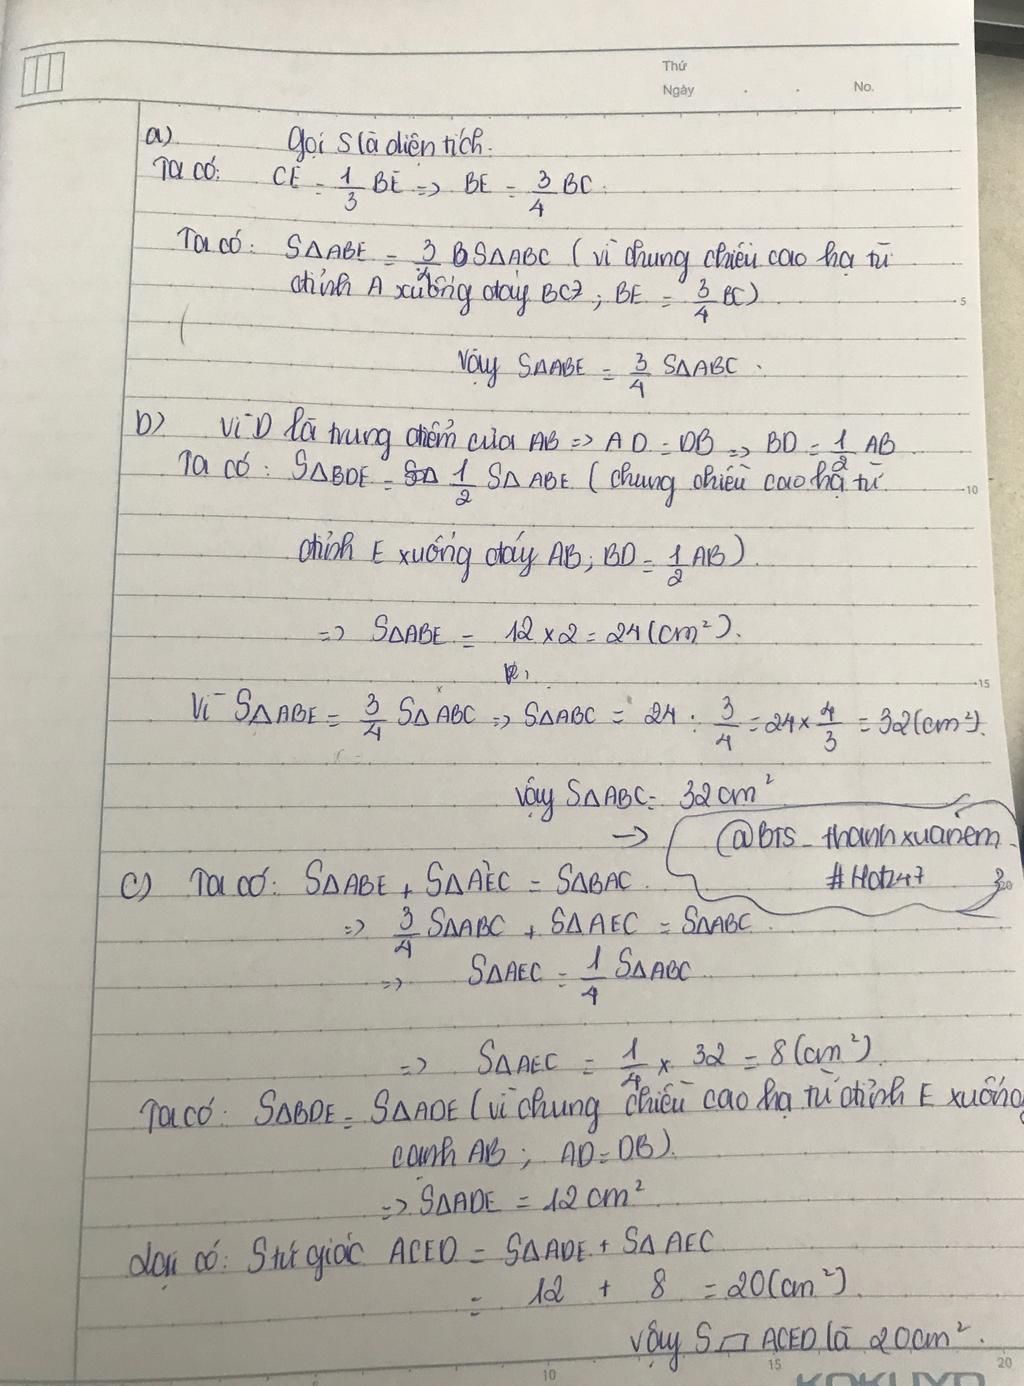 Thứ
Ngày . . No.
a) Gọi S là diện tích.
Ta có: CE = 1/3 BE => BE = 3/4 BC.
Ta có: SΔABE = 3/4 SΔABC (vì chung chiều cao hạ từ
đỉnh A xuống đáy BC; BE = 3/4 BC)
5
Vậy SΔABE = 3/4 SΔABC.
b) Vì D là trung điểm của AB => AD = DB => BD = 1/2 AB
Ta có: SΔBDE = 1/2 SΔABE (chung chiều cao hạ từ
10
đỉnh E xuống đáy AB; BD = 1/2 AB).
=> SΔABE = 12 x 2 = 24 (cm²).
15
Vì SΔABE = 3/4 SΔABC => SΔABC = 24 : 3/4 = 24 x 4/3 = 32 (cm²).
Vậy SΔABC = 32 cm²
→ @BTS_thanhxuanem
#Hoh247
20
c) Ta có: SΔABE + SΔAEC = SΔBAC.
=> 3/4 SΔABC + SΔAEC = SΔABC.
=> SΔAEC = 1/4 SΔABC
=> SΔAEC = 1/4 x 32 = 8 (cm²).
Ta có: SΔBDE = SΔADE (vì chung chiều cao hạ từ đỉnh E xuống
cạnh AB; AD = DB).
=> SΔADE = 12 cm²
Lại có: S tứ giác ACED = SΔADE + SΔAEC
= 12 + 8 = 20 (cm²).
Vậy S▱ ACED là 20 cm².
10 15 20
KOKUYO